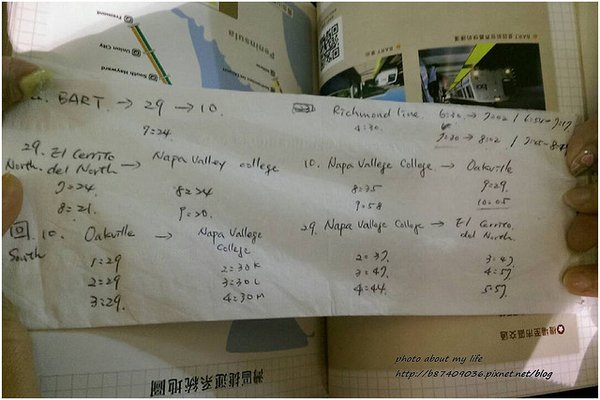 Fremont
Union City
South Hayward
Peninsula
BART → 29 → 10.
7:24
Richmond line
4:30.
29. El Cerrito del North → Napa Valley college
North.
7:24 8:24
8:21. 9:20.
10. Napa Vallege College. → Oakville
8:35 9:29.
9:58 10:05
回 10. Oakville → Napa Vallege College
South
1:29 2:30K
2:29 3:30L
3:29. 4:30M
29. Napa Vallege College → El Cerrito del North.
2:37. 3:47
3:47. 4:57.
4:44. 5:57.
機場至市區交通
灣區捷運系統地圖
photo about my life
http://b87409036.pixnet.net/blog